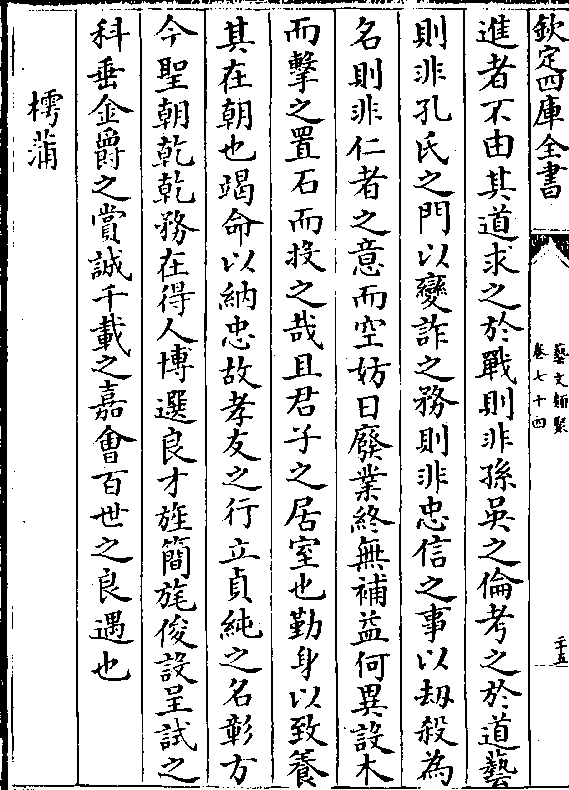 欽定四庫全書
藝文類聚
卷七十四
進者不由其道求之於戰則非孫吳之倫考之於道藝
則非孔氏之門以變詐之務則非忠信之事以刼殺為
名則非仁者之意而空妨日廢業終無補益何異設木
而擊之置石而投之哉且君子之居室也勤身以致養
其在朝也竭命以納忠故孝友之行立貞純之名彰方
今聖朝乾乾務在得人博選良才旌簡旄俊設呈試之
科垂金爵之賞誠千載之嘉會百世之良遇也
樗蒲